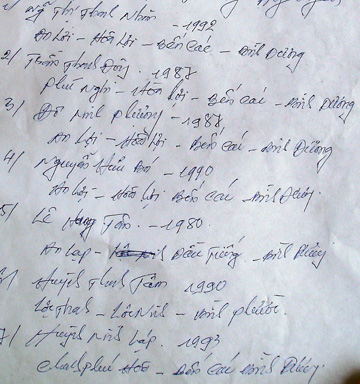 1/ Ng Thị Thanh Nhàn - 1992
An Lợi - Hòa Lợi - Bến Cát - Bình Dương
2/ Trần Thanh 1987
Phú Nghị - Hòa Lợi - Bến Cát - Bình Dương
3/ Đỗ Minh Phương - 1987
An Lợi - Hòa Lợi - Bến Cát - Bình Dương
4/ Nguyễn Hữu - 1990
An Lợi - Hòa Lợi Bến Cát - Bình Dương.
5/ Lê Tấn. - 1980
An Lập - Dầu Tiếng - Bình Dương
6/ Huỳnh Thanh Tâm 1990
Lộc Thạnh - Lộc Ninh - Bình Phước.
7/ Huỳnh Minh 1993
Chánh Phú Hòa - Bến Cát Bình Dương.